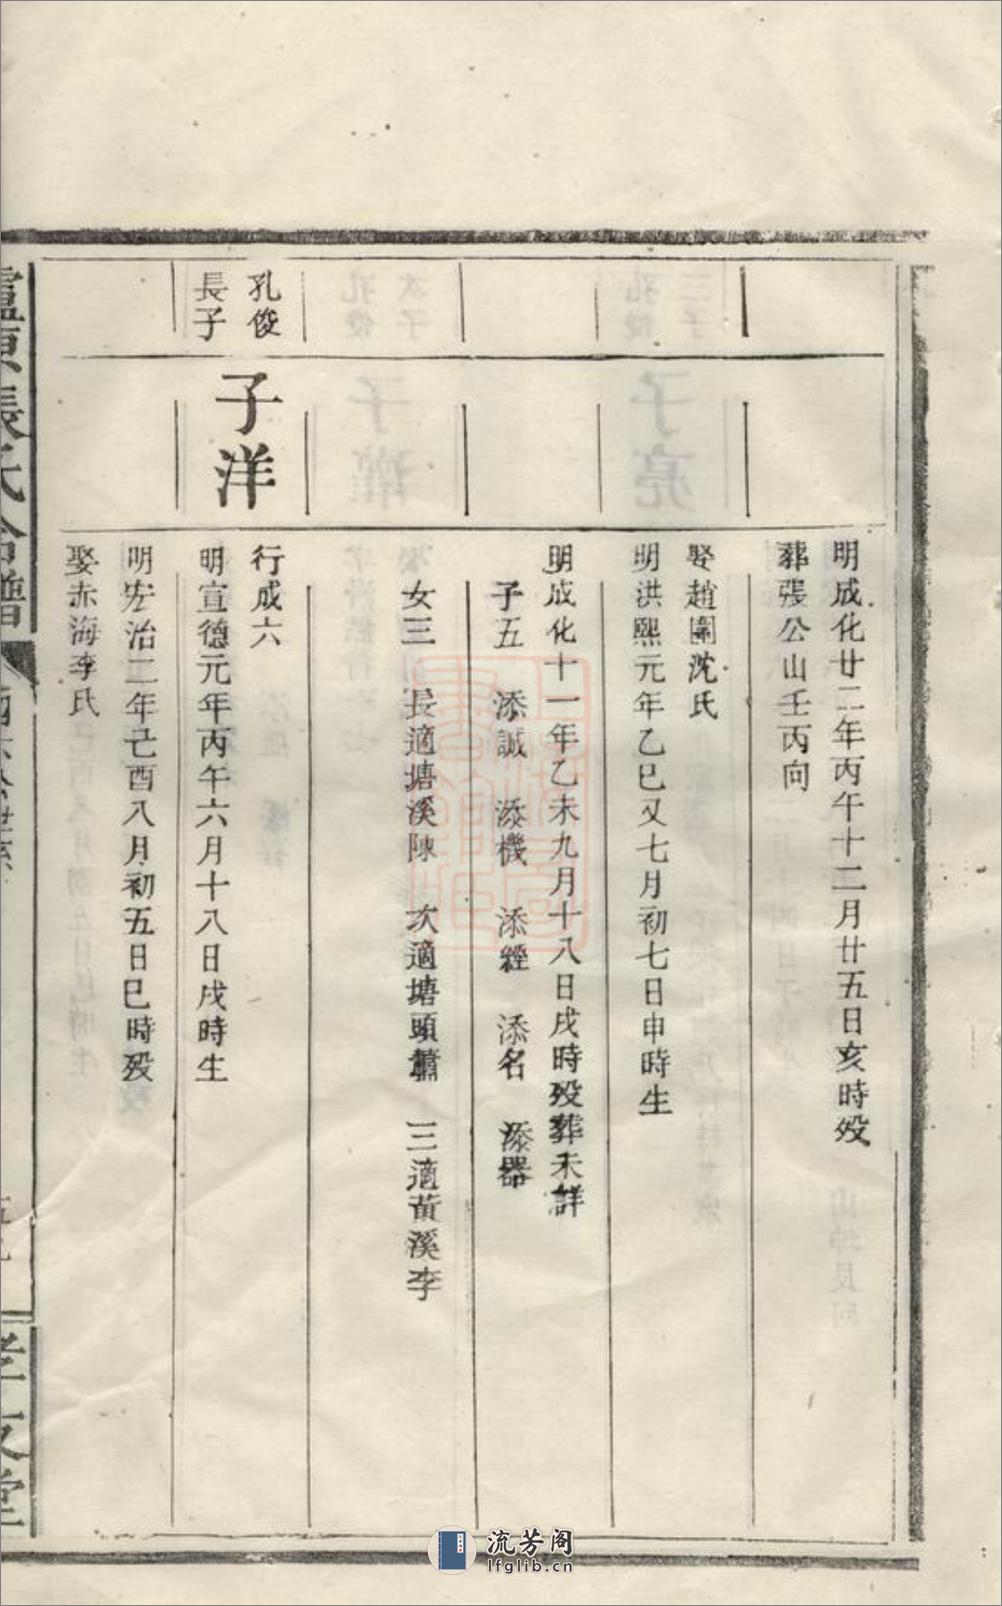 明成化廿二年丙午十二月廿五日亥時歿
葬張公山壬丙向
娶趙園沈氏
明洪熙元年乙巳又七月初七日申時生
明成化十一年乙未九月十八日戌時歿葬未詳
子五 添誠 添機 添經 添名 添器
女三 長適塘溪陳 次適塘頭蕭 三適黃溪李
孔俊
長子
子洋
行成六
明宣德元年丙午六月十八日戌時生
明宏治二年己酉八月初五日巳時歿
娶赤海李氏
張氏合譜
流芳阁
lfglib.cn